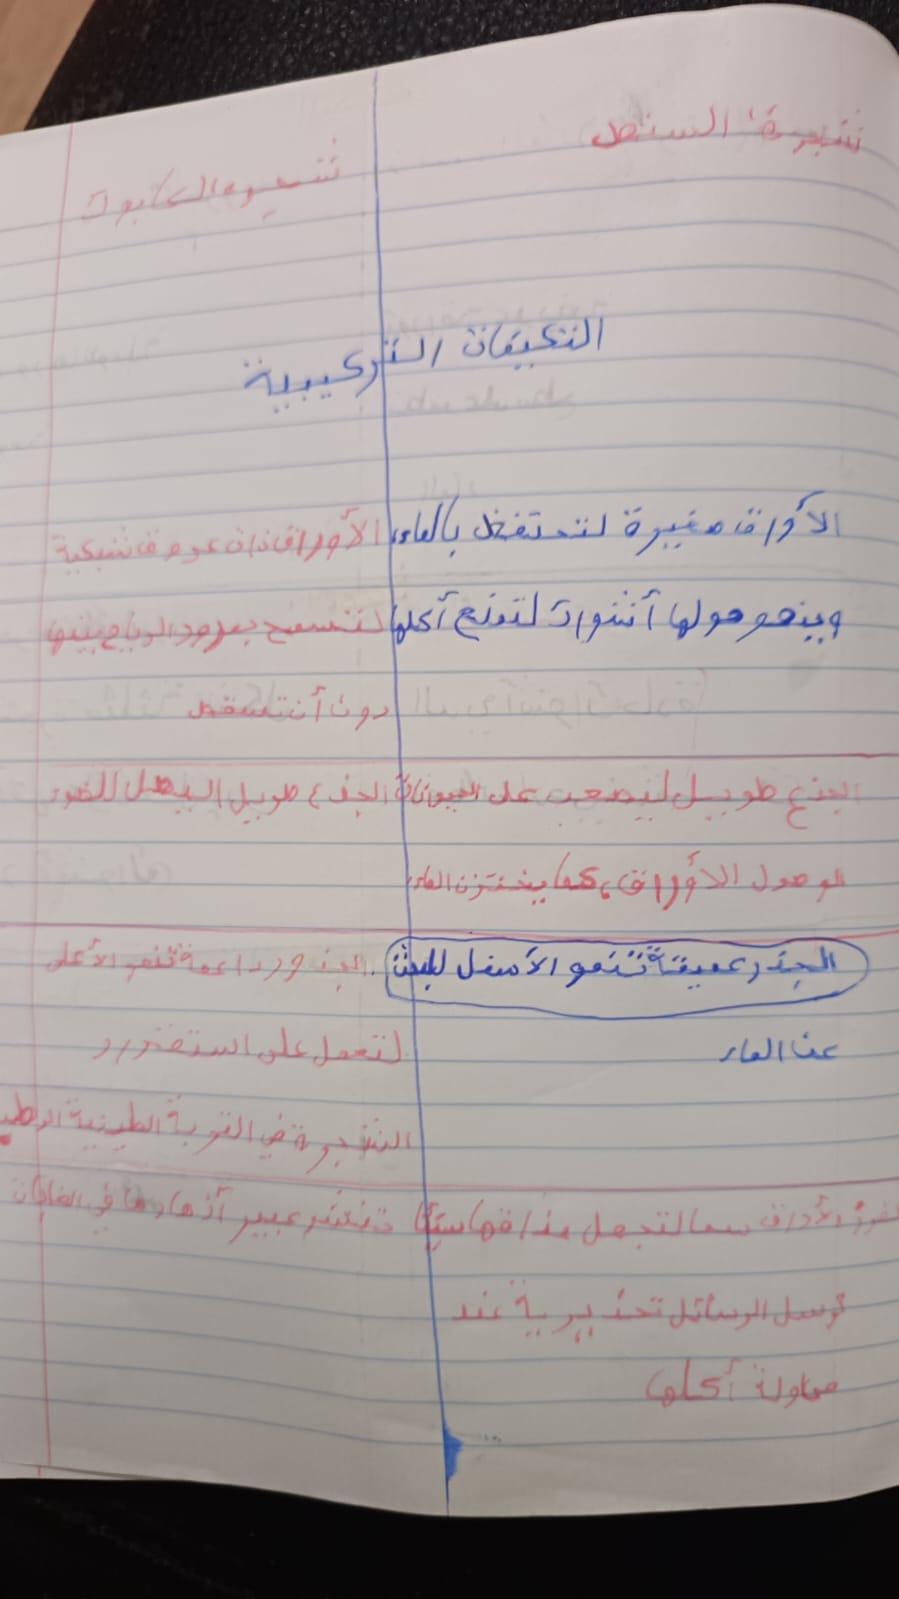 شجرة السنط
شجرة الكابوك
التكيفات التركيبية
الأوراق صغيرة لتحتفظ بالماء
وينمو حولها أشواك لتمنع أكلها
الأوراق ذات عروق شبكية
لتسمح بمرور الرياح بينها
دون أن تسقط
الجذع طويل ليصعب على الحيوانات
الوصول الأوراق، كما يختزن الماء
الجذع طويل ليصل للضوء
الجذر عميقة تنمو الأسفل للبحث
عن الماء
الجذور داعمة تنمو الأعلى
لتعمل على استقرار
الشجرة في التربة الطينية
الأوراق سما لتجعل مذاقها سيئا
ترسل الرسائل تحذيرية عند
محاولة أكلها
تنشر عبير أزهارها في الغابات